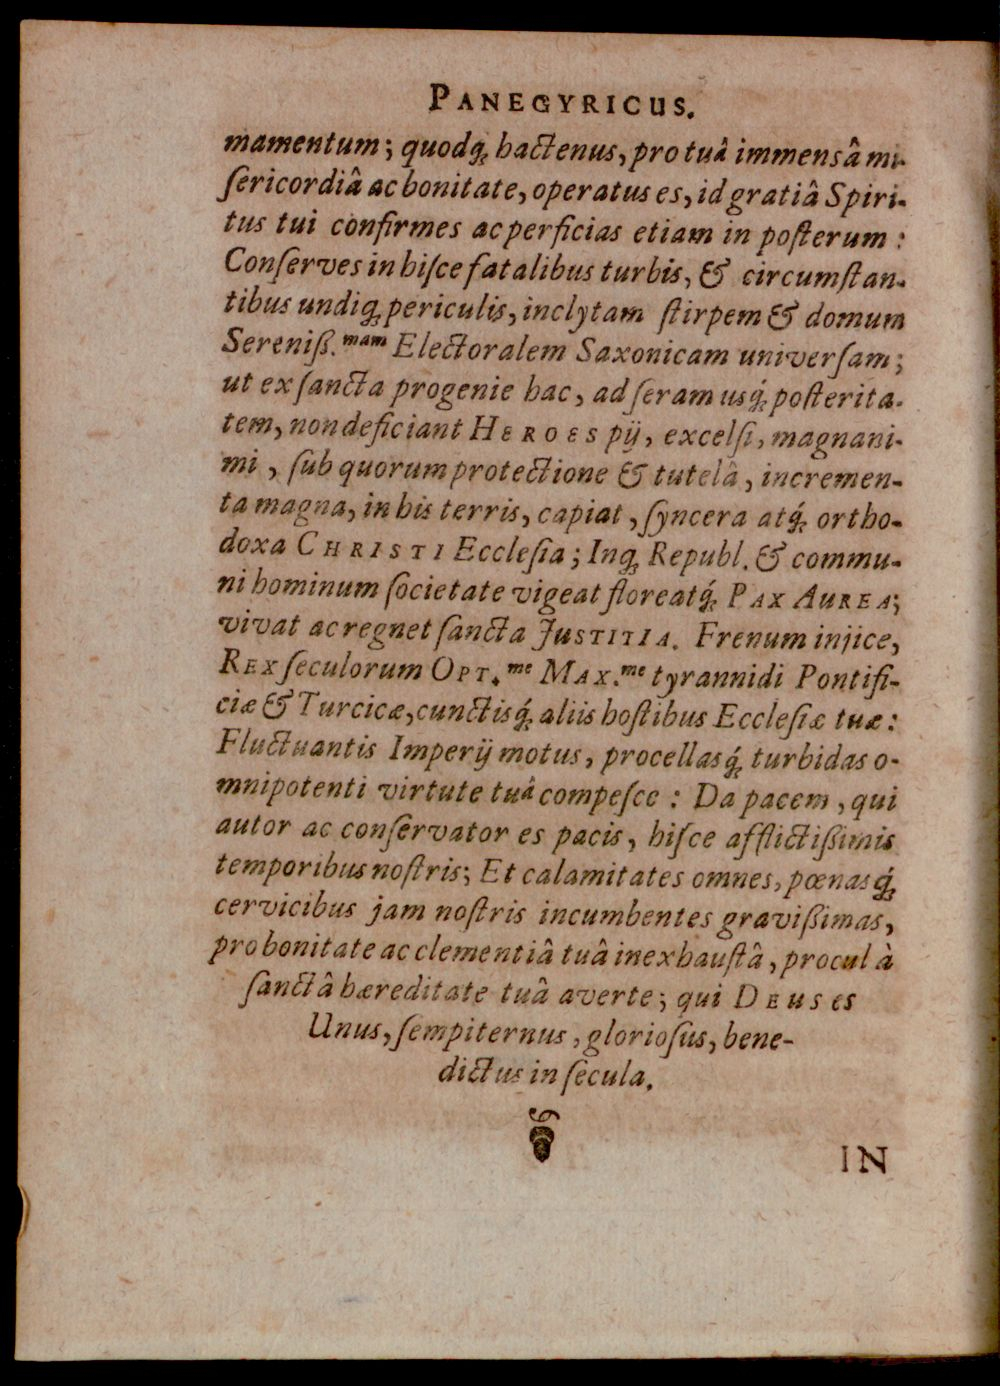 PANEGYRICUS.
mamentum; quodq́; hactenus, pro tuâ immensâ mi-
ſericordiâ ac bonitate, operatus es, id gratiâ Spiri-
tus tui confirmes ac perficias etiam in poſterum:
Conſerves in hiſce fatalibus turbis, & circumſtan-
tibus undiq; periculis, inclytam ſtirpem & domum
Sereniß.mam Electoralem Saxonicam univerſam;
ut ex ſancta progenie hac, ad ſeram usq́; poſterita-
tem, non deficiant HEROES pij, excelſi, magnani-
mi, ſub quorum protectione & tutelâ, incremen-
ta magna, in his terris, capiat, ſyncera atq́; ortho-
doxa CHRISTI Eccleſia; Inq; Republ. & commu-
ni hominum ſocietate vigeat floreatq́; PAX AUREA;
vivat ac regnet ſancta JUSTITIA. Frenum injice,
REX ſeculorum OPT.me MAX.me tyrannidi Pontifi-
ciæ & Turcicæ, cunctisq́; aliis hoſtibus Eccleſiæ tuæ:
Fluctuantis Imperij motus, procellasq́; turbidas o-
mnipotenti virtute tuâ compeſce: Da pacem, qui
autor ac conſervator es pacis, hiſce afflictißimis
temporibus noſtris; Et calamitates omnes, pœnasq́;
cervicibus jam noſtris incumbentes gravißimas,
pro bonitate ac clementiâ tuâ inexhauſtâ, procul à
ſanctâ hæreditate tuâ averte; qui DEUS es
Unus, ſempiternus, glorioſus, bene-
dictus in ſecula.
IN